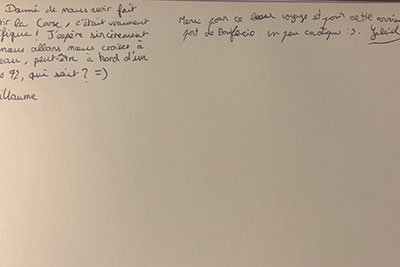 Danné de nous avoir fait
tir la Corse, c'était vraiment
ifique ! J'espère sincèrement
nous allons nous croiser à
eau, peut-être à bord d'un
92, qui sait ? =)
illaume
Merci pour ce beau voyage et pour cette
port de Bonifacio un peu caotique :).